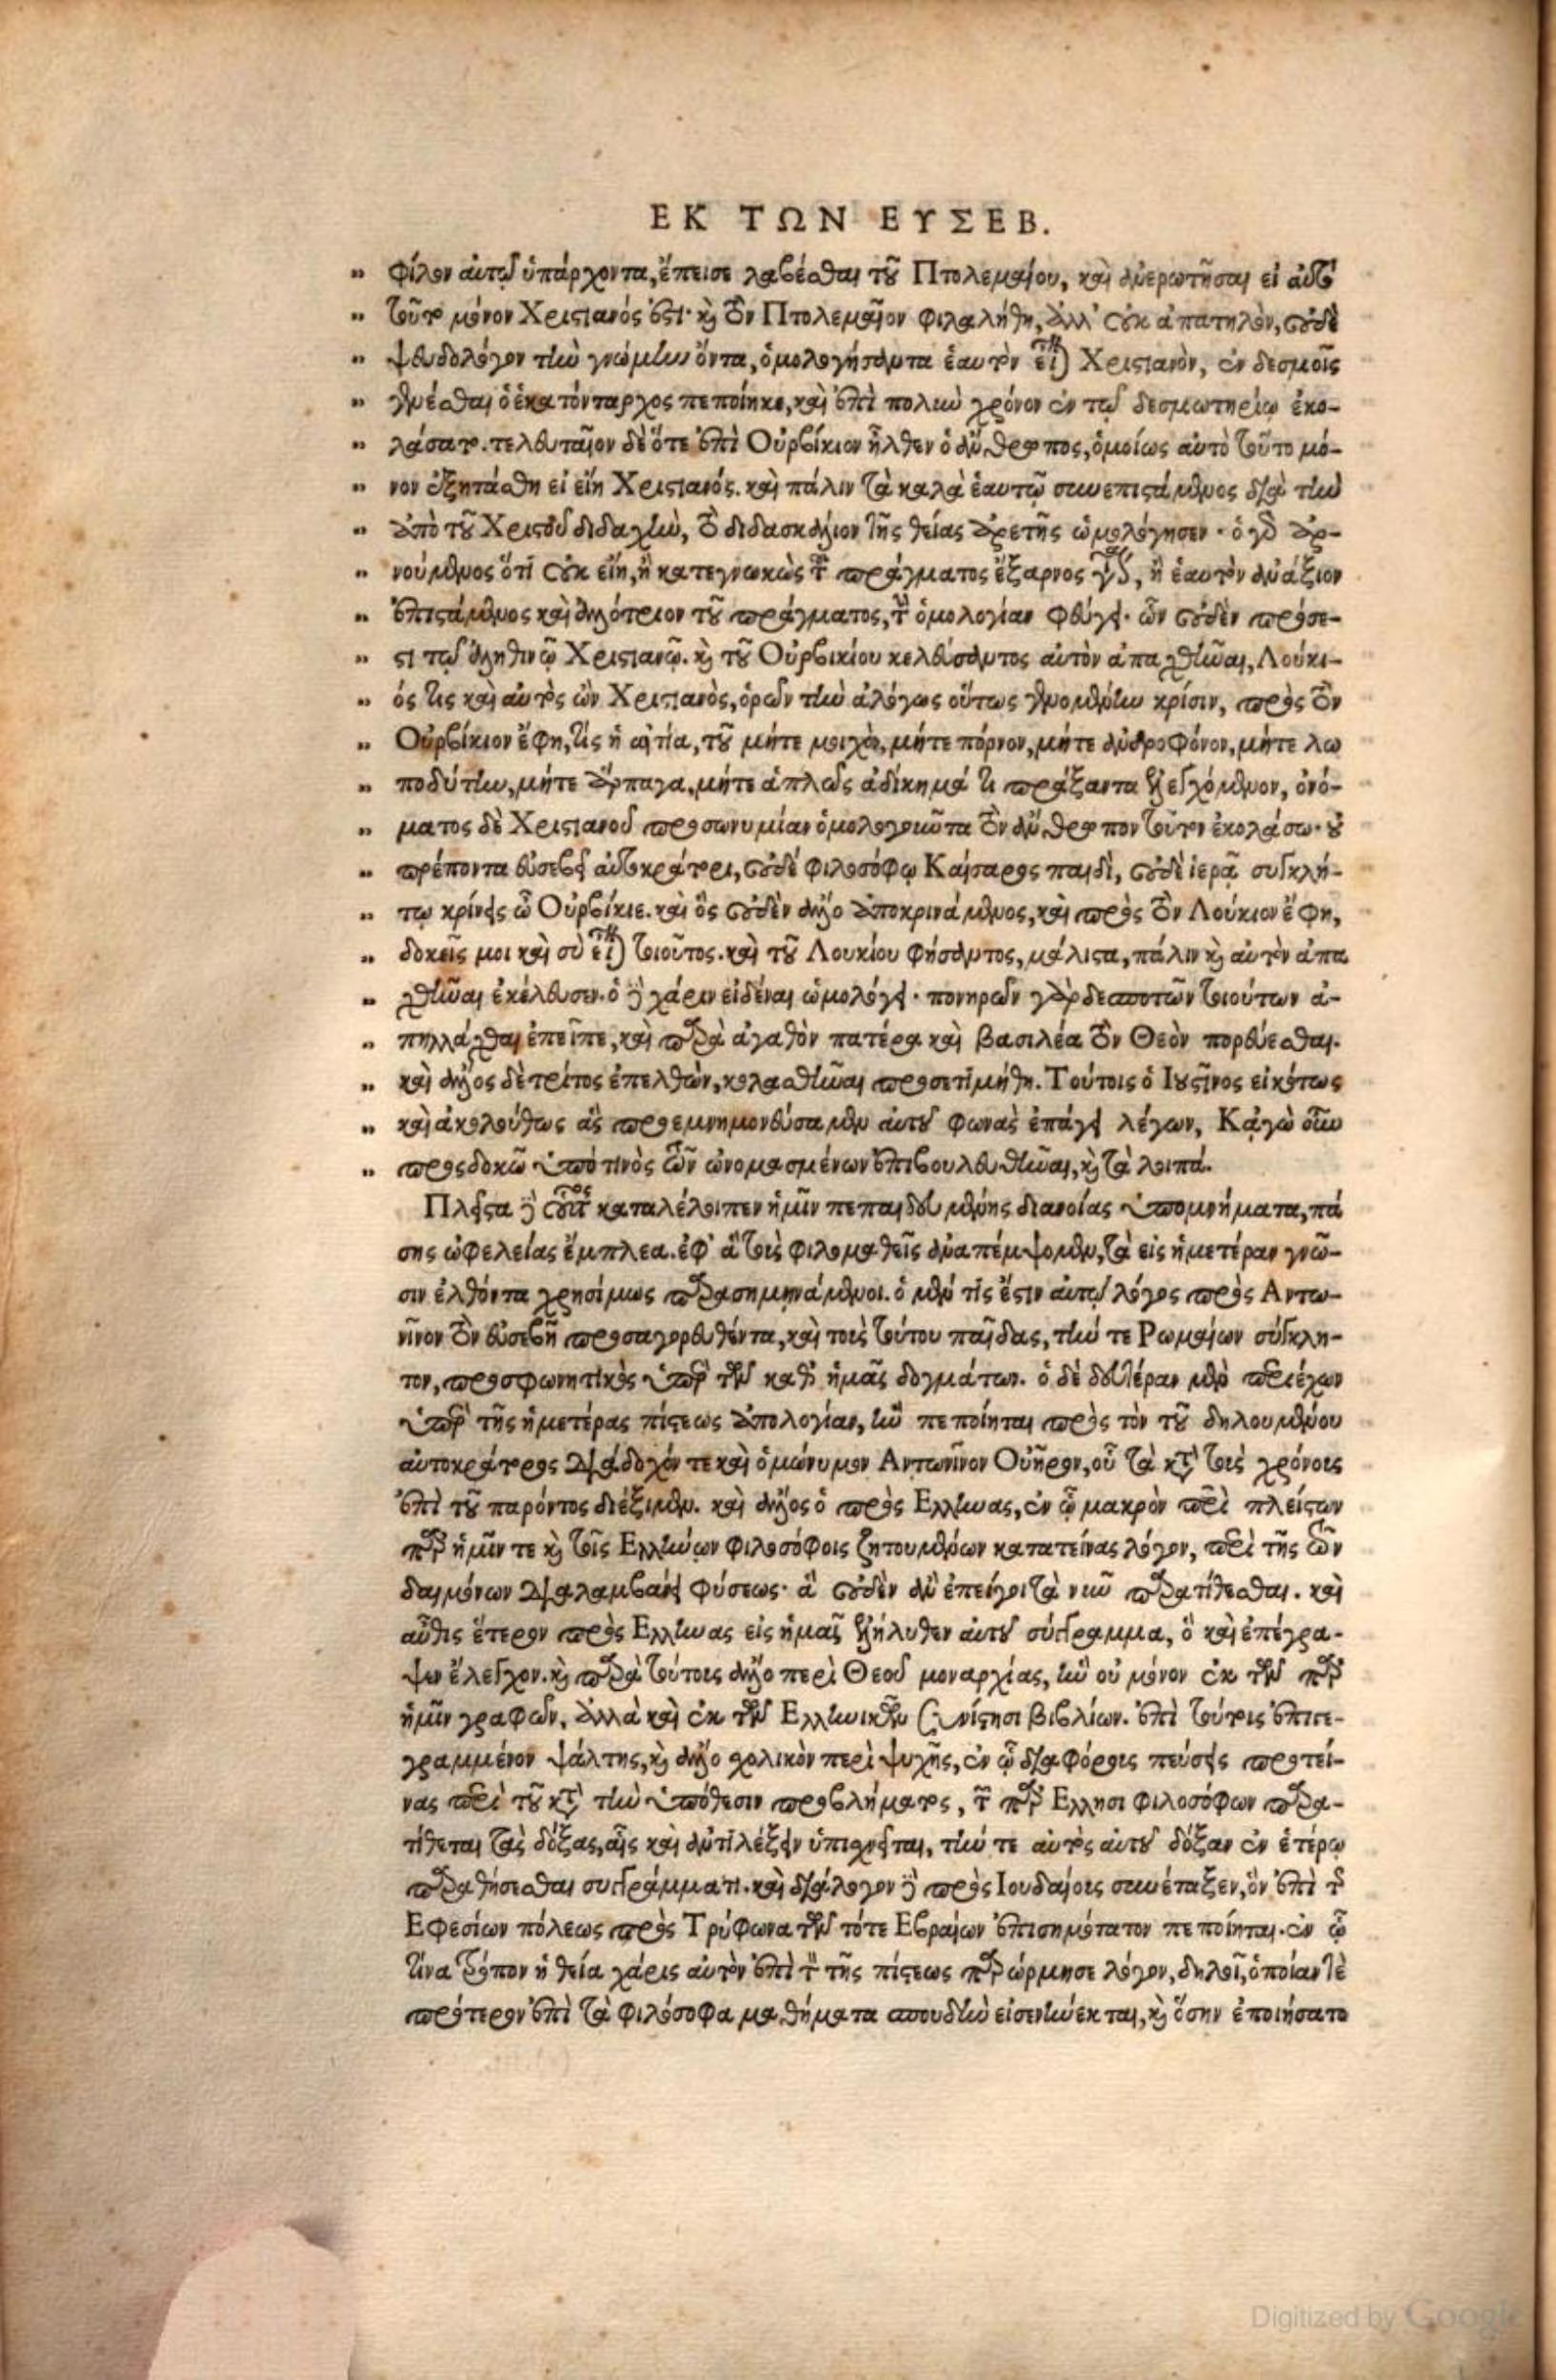 ΕΚ ΤΩΝ ΕΥΣΕΒ.
„ φίλον αὐτῷ ὑπάρχοντα, ἔπεισε λαβέσθαι τοῦ Πτολεμαίου, καὶ ἀνερωτῆσαι εἰ αὐτὸ
„ τοῦτο μόνον Χριστιανός ἐστι· καὶ τὸν Πτολεμαῖον φιλαλήθη, ἀλλ' οὐκ ἀπατηλὸν, οὐδὲ
„ ψευδολόγον τὴν γνώμην ὄντα, ὁμολογήσαντα ἑαυτὸν εἶναι Χριστιανὸν, ἐν δεσμοῖς
„ γενέσθαι ὁ ἑκατόνταρχος πεποίηκε, καὶ ἐπὶ πολὺν χρόνον ἐν τῷ δεσμωτηρίῳ ἐκο-
„ λάσατο. τελευταῖον δὲ ὅτε ἐπὶ Οὐρβίκιον ἦλθεν ὁ ἄνθρωπος, ὁμοίως αὐτὸ τοῦτο μό-
„ νον ἐξητάσθη εἰ εἴη Χριστιανός. καὶ πάλιν τὰ καλὰ ἑαυτῷ συνεπιστάμενος διὰ τὴν
„ ἀπὸ τοῦ Χριστοῦ διδαχὴν, τὸ διδασκάλιον τῆς θείας ἀρετῆς ὡμολόγησεν· ὁ γὰρ ἀρ-
„ νούμενος ὅτι οὐκ εἴη, ἢ κατεγνωκὼς τοῦ πράγματος ἔξαρνος γίνεται, ἢ ἑαυτὸν ἀνάξιον
„ ἐπιστάμενος καὶ ἀλλότριον τοῦ πράγματος, τὴν ὁμολογίαν φεύγει· ὧν οὐδὲν πρόσε-
„ στι τῷ ἀληθινῷ Χριστιανῷ. καὶ τοῦ Οὐρβικίου κελεύσαντος αὐτὸν ἀπαχθῆναι, Λούκι-
„ ός τις καὶ αὐτὸς ὢν Χριστιανὸς, ὁρῶν τὴν ἀλόγως οὕτως γενομένην κρίσιν, πρὸς τὸν
„ Οὐρβίκιον ἔφη, τίς ἡ αἰτία, τοῦ μήτε μοιχὸν, μήτε πόρνον, μήτε ἀνδροφόνον, μήτε λω
„ ποδύτην, μήτε ἅρπαγα, μήτε ἁπλῶς ἀδίκημά τι πράξαντα ἐξελεγχόμενον, ὀνό-
„ ματος δὲ Χριστιανοῦ προσωνυμίαν ὁμολογοῦντα τὸν ἄνθρωπον τοῦτον ἐκολάσω· οὐ
„ πρέποντα εὐσεβεῖ αὐτοκράτορι, οὐδὲ φιλοσόφῳ Καίσαρος παιδὶ, οὐδὲ ἱερᾷ συγκλή-
„ τῳ κρίνεις ὦ Οὐρβίκιε. καὶ ὃς οὐδὲν ἄλλο ἀποκρινάμενος, καὶ πρὸς τὸν Λούκιον ἔφη,
„ δοκεῖς μοι καὶ σὺ εἶναι τοιοῦτος. καὶ τοῦ Λουκίου φήσαντος, μάλιστα, πάλιν καὶ αὐτὸν ἀπα
„ χθῆναι ἐκέλευσεν. ὁ δὲ χάριν εἰδέναι ὡμολόγει· πονηρῶν γὰρ δεσποτῶν τοιούτων ἀ-
„ πηλλάχθαι ἐπεῖπε, καὶ παρὰ ἀγαθὸν πατέρα καὶ βασιλέα τὸν Θεὸν πορεύεσθαι.
„ καὶ ἄλλος δὲ τρίτος ἐπελθὼν, κολασθῆναι προσετιμήθη. Τούτοις ὁ Ἰουστῖνος εἰκότως
„ καὶ ἀκολούθως ἃς προεμνημονεύσαμεν αὐτοῦ φωνὰς ἐπάγει λέγων, Κἀγὼ οὖν
„ προσδοκῶ ὑπό τινὸς τῶν ὠνομασμένων ἐπιβουλευθῆναι, καὶ τὰ λοιπά.
Πλεῖστα δὲ οὗτος καταλέλοιπεν ἡμῖν πεπαιδευμένης διανοίας ὑπομνήματα, πά
σης ὠφελείας ἔμπλεα. ἐφ' ἃ τοὺς φιλομαθεῖς ἀναπέμψομεν, τὰ εἰς ἡμετέραν γνῶ-
σιν ἐλθόντα χρησίμως παρασημηνάμενοι. ὁ μέν τίς ἐστιν αὐτῷ λόγος πρὸς Ἀντω-
νῖνον τὸν εὐσεβῆ προσαγορευθέντα, καὶ τοὺς τούτου παῖδας, τήν τε Ῥωμαίων σύγκλη-
τον, προσφωνητικὸς ὑπὲρ τῶν καθ' ἡμᾶς δογμάτων. ὁ δὲ δευτέραν μὲν περιέχων
ὑπὲρ τῆς ἡμετέρας πίστεως ἀπολογίαν, ἣν πεποίηται πρὸς τὸν τοῦ δηλουμένου
αὐτοκράτορος διάδοχόν τε καὶ ὁμώνυμον Ἀντωνῖνον Οὐῆρον, οὗ τὰ κατὰ τοὺς χρόνους
ἐπὶ τοῦ παρόντος διέξιμεν. καὶ ἄλλος ὁ πρὸς Ἕλληνας, ἐν ᾧ μακρὸν περὶ πλείστων
παρ' ἡμῖν τε καὶ τοῖς Ἑλλήνων φιλοσόφοις ζητουμένων κατατείνας λόγον, περὶ τῆς τῶν
δαιμόνων διαλαμβάνει φύσεως· ἃ οὐδὲν ἂν ἐπείγοι τὰ νῦν παρατίθεσθαι. καὶ
αὖθις ἕτερον πρὸς Ἕλληνας εἰς ἡμᾶς ἐξήλυθεν αὐτοῦ σύγγραμμα, ὃ καὶ ἐπέγρα-
ψεν ἔλεγχον. καὶ παρὰ τούτοις ἄλλο περὶ Θεοῦ μοναρχίας, ἣν οὐ μόνον ἐκ τῶν παρ'
ἡμῖν γραφῶν, ἀλλὰ καὶ ἐκ τῶν Ἑλληνικῶν συνίστησι βιβλίων. ἐπὶ τούτοις ἐπιγε-
γραμμένον ψάλτης, καὶ ἄλλο σχολικὸν περὶ ψυχῆς, ἐν ᾧ διαφόρους πεύσεις προτεί-
νας περὶ τοῦ κατὰ τὴν ὑπόθεσιν προβλήματος, τῶν παρ' Ἕλλησι φιλοσόφων παρα-
τίθεται τὰς δόξας, αἷς καὶ ἀντιλέξειν ὑπισχνεῖται, τήν τε αὐτὸς αὐτοῦ δόξαν ἐν ἑτέρῳ
παραθήσεσθαι συγγράμματι. καὶ διάλογον δὲ πρὸς Ἰουδαίους συνέταξεν, ὃν ἐπὶ τῆς
Ἐφεσίων πόλεως πρὸς Τρύφωνα τῶν τότε Ἑβραίων ἐπισημότατον πεποίηται. ἐν ᾧ
τίνα τρόπον ἡ θεία χάρις αὐτὸν ἐπὶ τὸν τῆς πίστεως παρώρμησε λόγον, δηλοῖ, ὁποίαν τὲ
πρότερον ἐπὶ τὰ φιλόσοφα μαθήματα σπουδὴν εἰσενήνεκται, καὶ ὅσην ἐποιήσατο
Digitized by Google